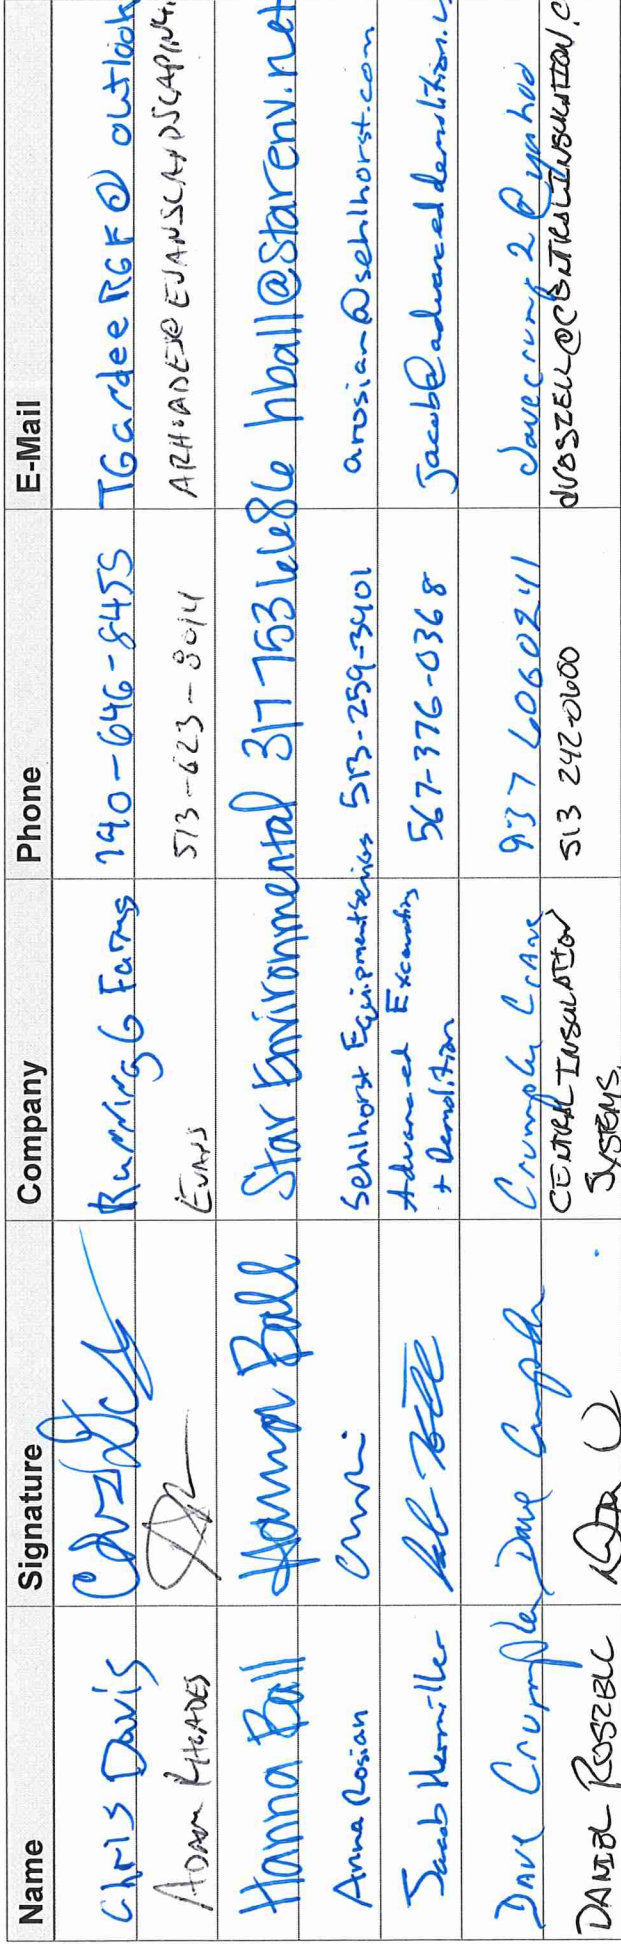 Name Signature Company Phone E-Mail
Chris Davis Running G Farms 740-646-8455 TGardeeRGF@outlook
ADAM RHOADES EVANS 513-623-8014 ARHOADES@EVANSLANDSCAPING.
Hanna Ball Hanna Ball Star Environmental 317 753 6686 hball@starenv.net
Anna Rosian Sehlhorst Equipment Services 513-259-3401 arosian@sehlhorst.com
Jacob Hermiller Advanced Excavating 567-376-0368 jacob@advanceddemolition.c
+ Demolition
DAVE Crumpler Dave Crumpler Crumpler CRANE 937 6060241 davecrump2@yahoo
DANIEL ROSZELL CENTRAL INSULATION 513 242-0600 dROSZELL@CENTRALINSULATION.C
SYSTEMS